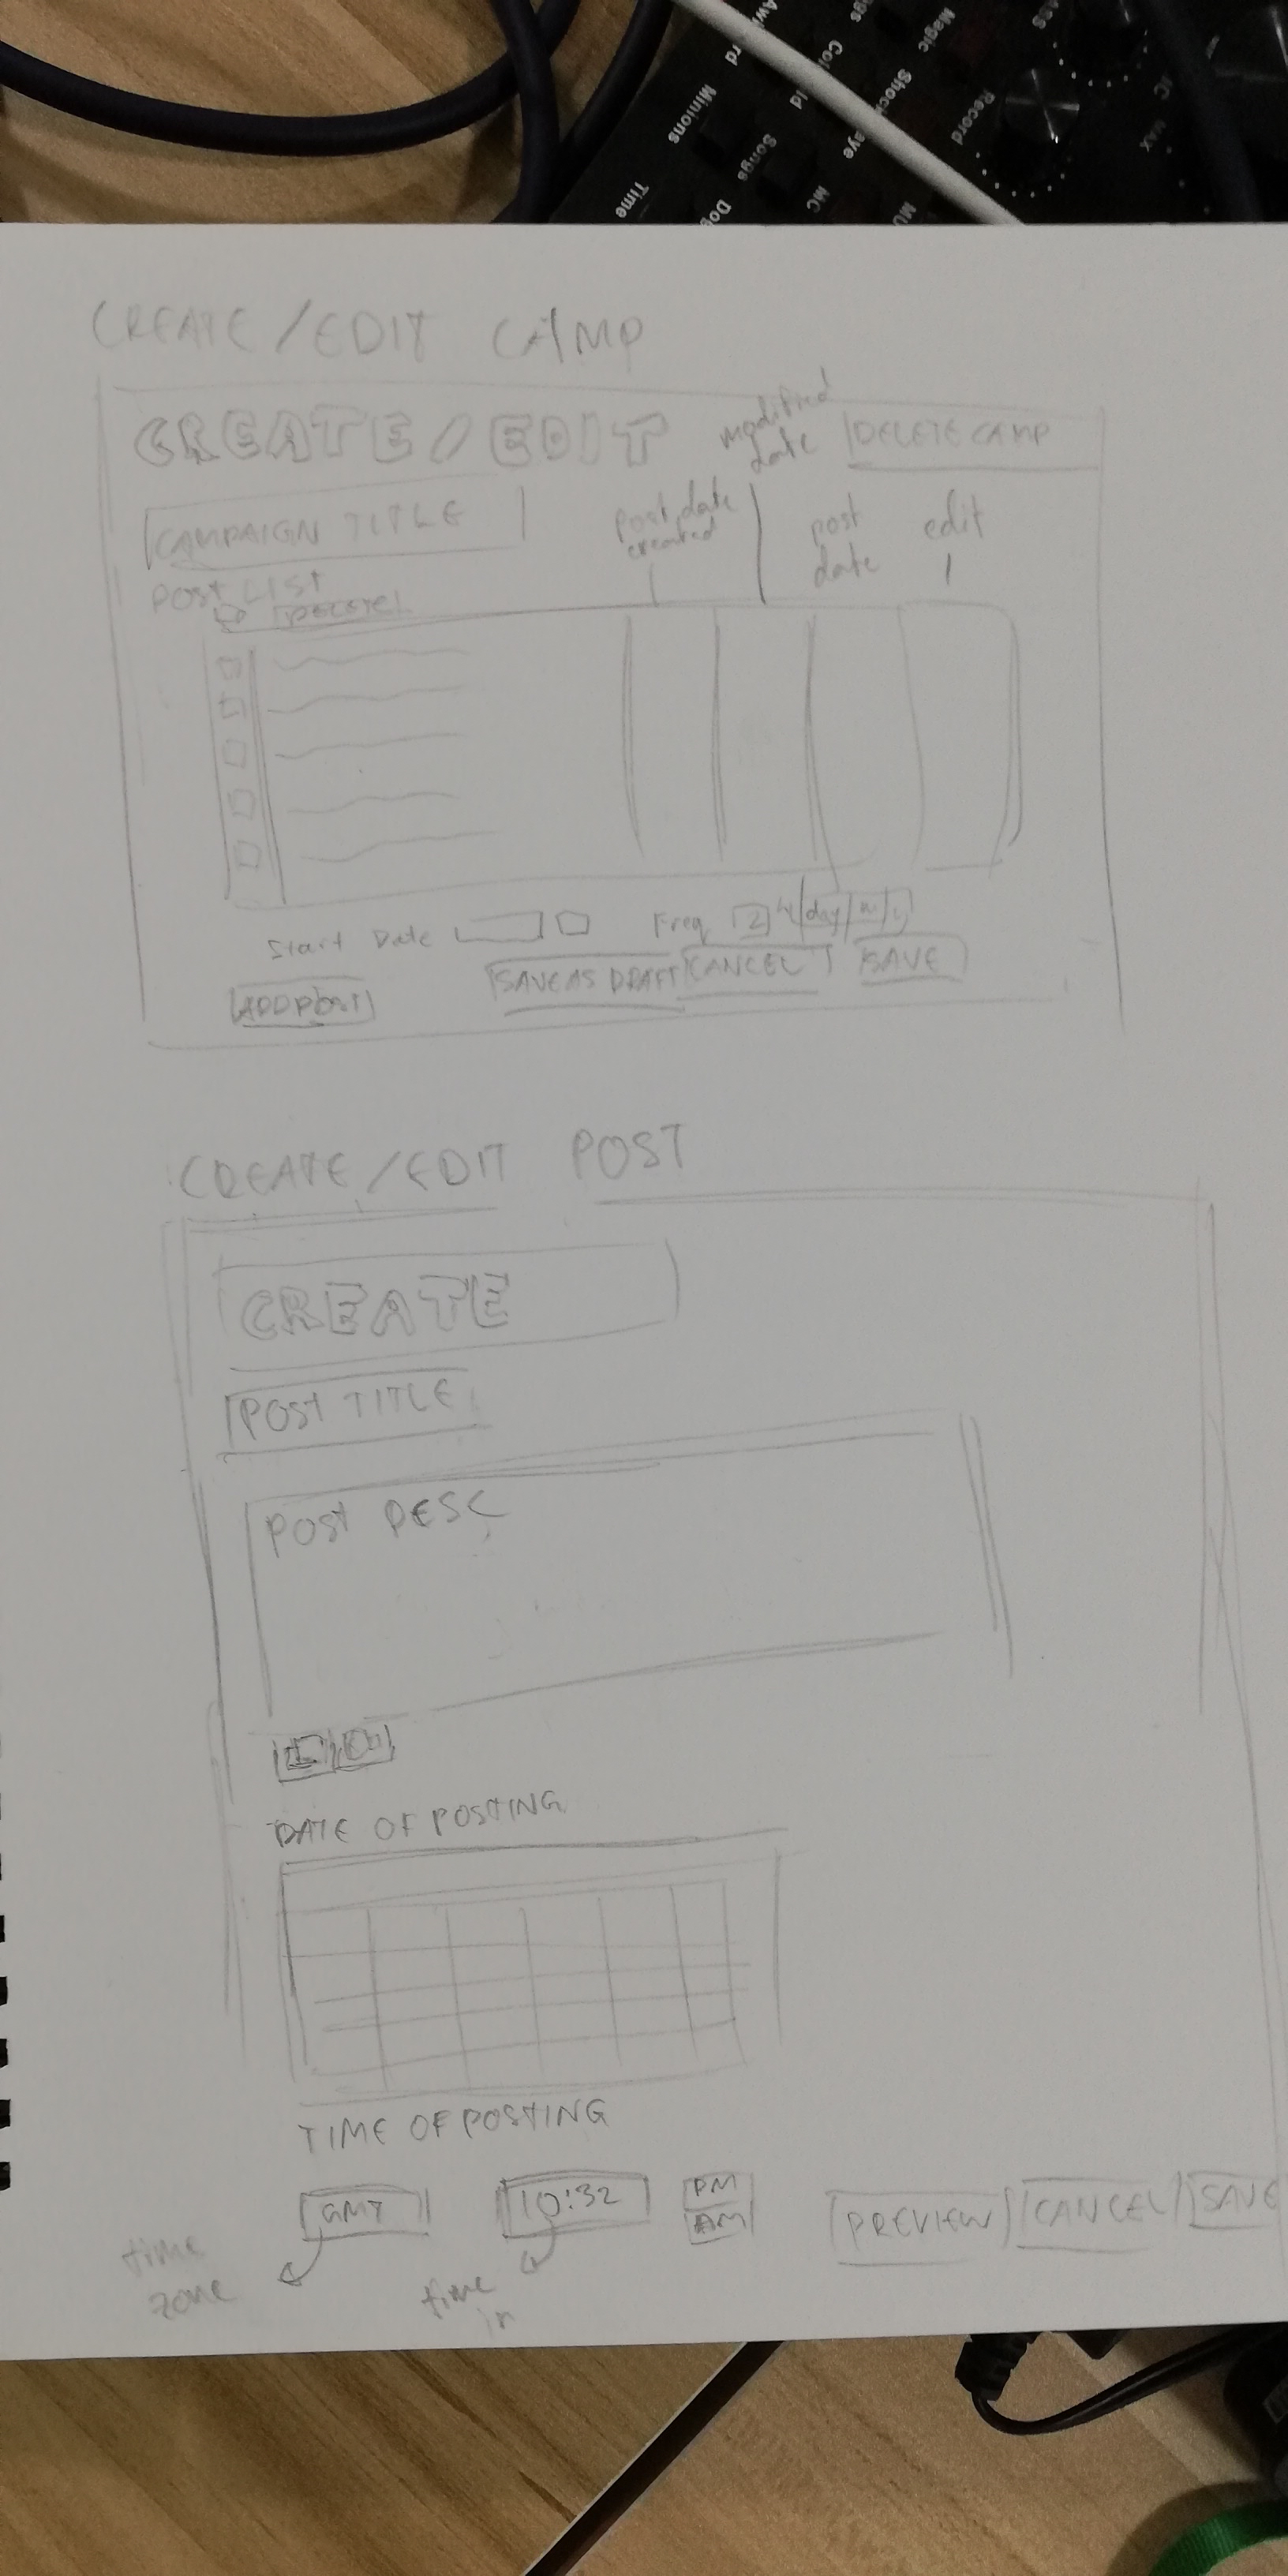 Minions
Time
Songs
Magic
Record
MC
MAX
CREATE/EDIT CAMP
CREATE/EDIT
modified
date
DELETE CAMP
CAMPAIGN TITLE
post date
created
post
date
edit
POST LIST
DELETE
Start Date
Freq 2 day
SAVE AS DRAFT
CANCEL
SAVE
ADD POST
CREATE/EDIT POST
CREATE
POST TITLE
POST DESC
DATE OF POSTING
TIME OF POSTING
GMT
10:32
PM
AM
PREVIEW
CANCEL
SAVE
time
zone
time
in